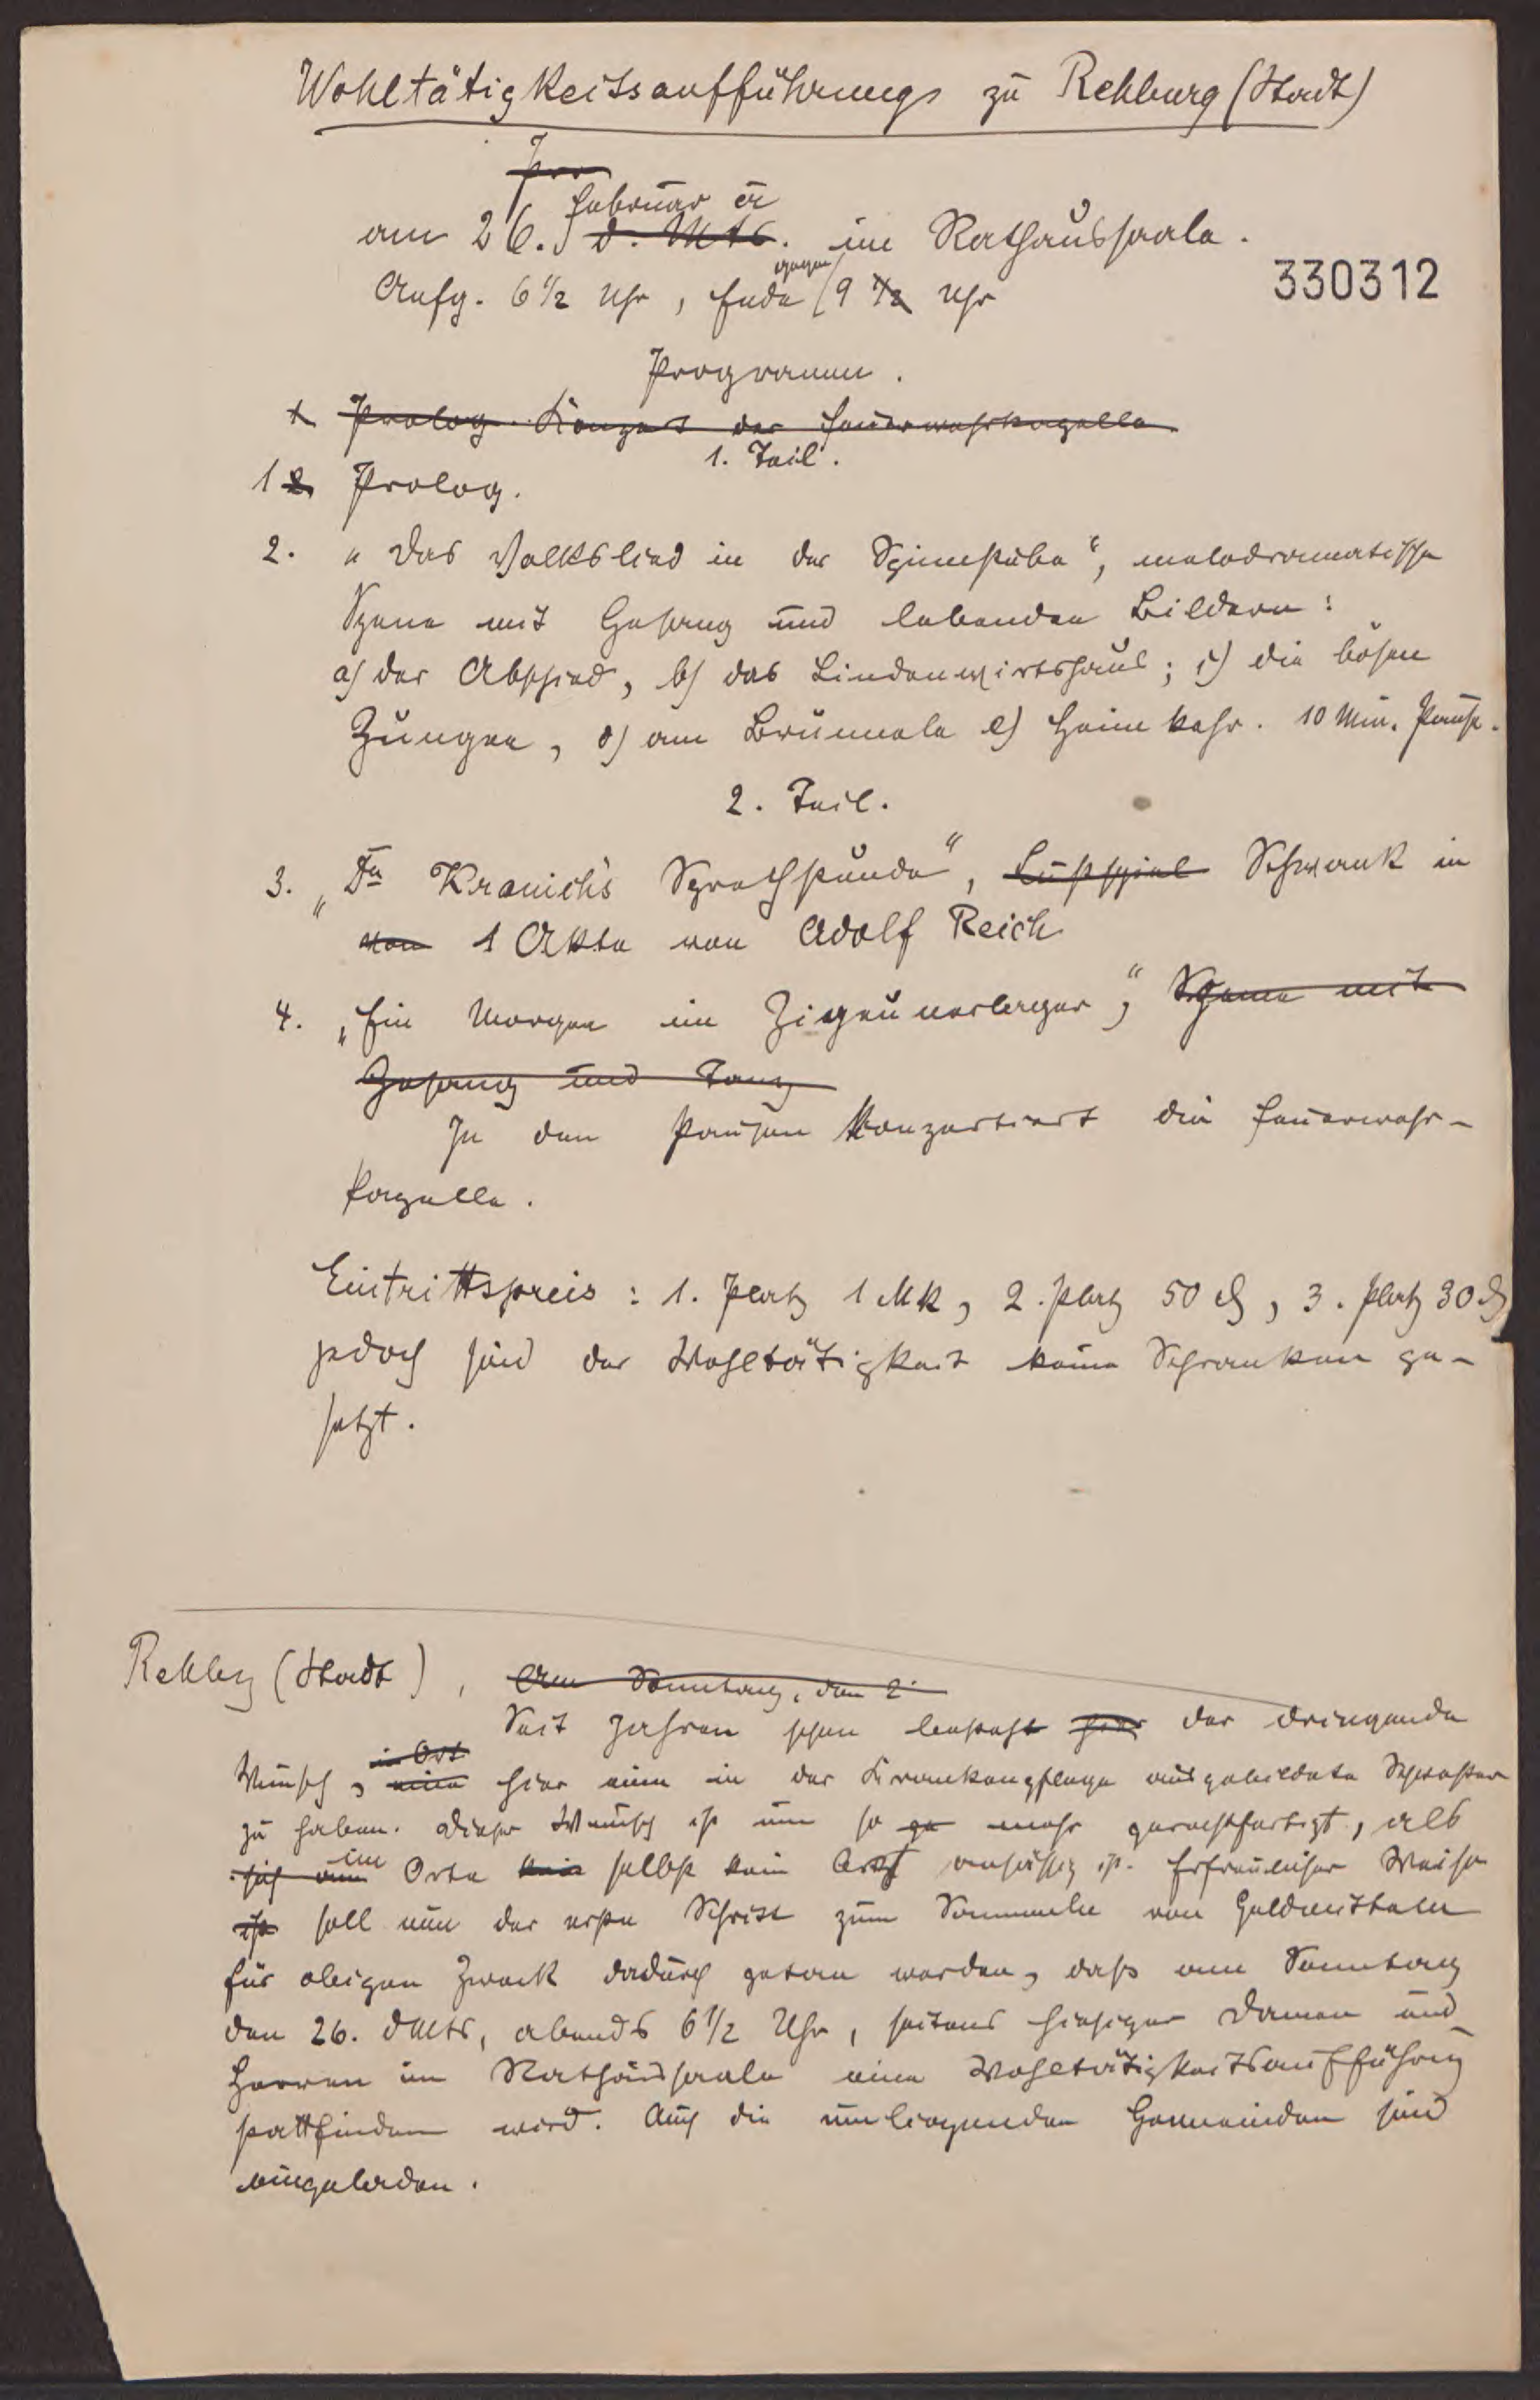 Wohltätigkeitsaufführung zu Rehburg (Stadt)
Februar cr
am 26. d. Mts. im Rathaussaale.
gegen
Anfg. 6 1/2 Uhr, Ende 9 1/2 Uhr
330312
Programm.
1. Prolog. Konzert der Feuerwehrkapelle
1. Teil.
1 2. Prolog.
2. „Das Volkslied in der Spinnstube“, melodramatische
Szene mit Gesang und lebenden Bildern:
a) der Abschied, b) das Lindenwirtshaus; c) die bösen
Zungen, d) am Brünnele e) Heimkehr. 10 Min. Pause.
2. Teil.
3. „Dr Kranichs Sprechstunde“, Lustspiel Schwank in
von 1 Akte von Adolf Reich
4. „Ein Morgen im Zigeunerlager“, Szene mit
Gesang und Tanz
In den Pausen konzertiert die Feuerwehr-
kapelle.
Eintrittspreis: 1. Platz 1 Mk, 2. Platz 50 ₰, 3. Platz 30 ₰
jedoch sind der Wohltätigkeit keine Schranken ge-
setzt.
Rehbg (Stadt), Am Sonntag, den 2
Seit Jahren schon besteht hier der dringende
im Ort
Wunsch, eine hier eine in der Krankenpflege ausgebildete Schwester
zu haben. Dieser Wunsch ist um so mehr gerechtfertigt, als
sich am im Orte kein selbst kein Arzt ansässig ist. Erfreulicher Weise
ist soll nun der erste Schritt zum Sammeln von Geldmitteln
für obigen Zweck dadurch getan werden, daß am Sonntag
den 26. d Mts, abends 6 1/2 Uhr, seitens hiesiger Damen und
Herren im Rathaussaale eine Wohltätigkeitsaufführung
stattfinden wird. Auch die umliegenden Gemeinden sind
eingeladen.